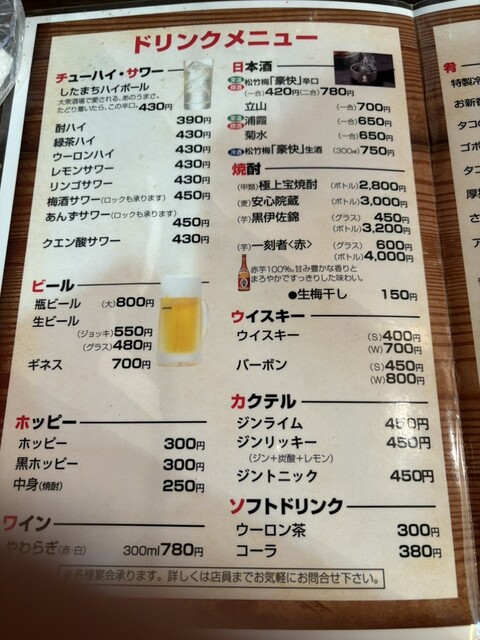 ドリンクメニュー
チューハイ・サワー
したまちハイボール
大衆酒場で愛される、あのうまさ。
たどり着いたら、この辛口。430円
酎ハイ 390円
緑茶ハイ 430円
ウーロンハイ 430円
レモンサワー 430円
リンゴサワー 430円
梅酒サワー(ロックも承ります) 450円
あんずサワー(ロックも承ります)
450円
クエン酸サワー 430円
ビール
瓶ビール (大)800円
生ビール
(ジョッキ)550円
(グラス)480円
ギネス 700円
ホッピー
ホッピー 300円
黒ホッピー 300円
中身(焼酎) 250円
ワイン
やわらぎ(赤・白) 300ml780円
日本酒
松竹梅「豪快」辛口
(一合)420円(二合)780円
立山 (一合)700円
浦霞 (一合)650円
菊水 (一合)650円
松竹梅「豪快」生酒 (300㎖)750円
焼酎
(甲類)極上宝焼酎 (ボトル)2,800円
(麦)安心院蔵 (ボトル)3,000円
(芋)黒伊佐錦 (グラス) 450円
(ボトル)3,200円
(芋)一刻者<赤> (グラス) 600円
(ボトル)4,000円
赤芋100%。甘み豊かな香りと
まろやかですっきりした味わい。
●生梅干し 150円
ウイスキー
ウイスキー (S)400円
(W)700円
バーボン (S)450円
(W)800円
カクテル
ジンライム 450円
ジンリッキー 450円
(ジン+炭酸+レモン)
ジントニック 450円
ソフトドリンク
ウーロン茶 300円
コーラ 380円
各種宴会承ります。詳しくは店員までお気軽にお問合せ下さい。
肴
特製冷
お新香
タコの
ゴボ
タコ
厚